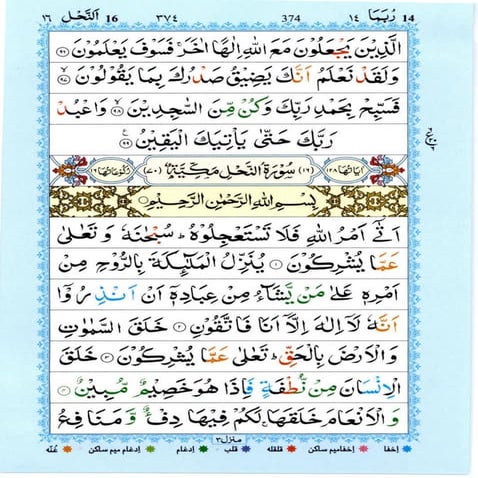 ١٦ اَلنَّحْل 16 ٣٧٤ 374 ١٤ رُبَمَا 14
الَّذِيْنَ يَجْعَلُوْنَ مَعَ اللّٰهِ اِلٰهًا اٰخَرَ ۚ فَسَوْفَ يَعْلَمُوْنَ ۹۶
وَلَقَدْ نَعْلَمُ اَنَّكَ يَضِيْقُ صَدْرُكَ بِمَا يَقُوْلُوْنَ ۹۷
فَسَبِّحْ بِحَمْدِ رَبِّكَ وَكُنْ مِّنَ السّٰجِدِيْنَ ۹۸ وَاعْبُدْ
رَبَّكَ حَتّٰى يَاْتِيَكَ الْيَقِيْنُ ۹۹
اٰيَاتُهَا ١٢٨ (١٦) سُوْرَةُ النَّحْلِ مَكِّيَّةٌ (٧٠) رُكُوْعَاتُهَا ١٦
بِسْمِ اللّٰهِ الرَّحْمٰنِ الرَّحِيْمِ
اَتٰٓى اَمْرُ اللّٰهِ فَلَا تَسْتَعْجِلُوْهُ ؕ سُبْحٰنَهٗ وَتَعٰلٰى
عَمَّا يُشْرِكُوْنَ ۱ يُنَزِّلُ الْمَلٰٓئِكَةَ بِالرُّوْحِ مِنْ
اَمْرِهٖ عَلٰى مَنْ يَّشَآءُ مِنْ عِبَادِهٖٓ اَنْ اَنْذِرُوْٓا
اَنَّهٗ لَآ اِلٰهَ اِلَّآ اَنَا فَاتَّقُوْنِ ۲ خَلَقَ السَّمٰوٰتِ
وَالْاَرْضَ بِالْحَقِّ ؕ تَعٰلٰى عَمَّا يُشْرِكُوْنَ ۳ خَلَقَ
الْاِنْسَانَ مِنْ نُّطْفَةٍ فَاِذَا هُوَ خَصِيْمٌ مُّبِيْنٌ ۴
وَالْاَنْعَامَ خَلَقَهَا ۚ لَكُمْ فِيْهَا دِفْءٌ وَّمَنَافِعُ
منزل ٣
اخفا اخفامیم ساکن قلقله قلب ادغام ادغام میم ساکن غنّه